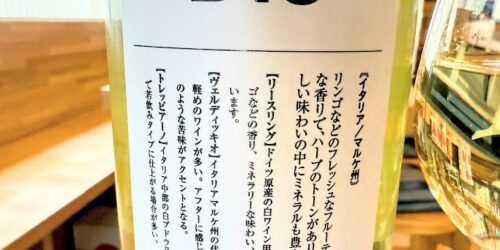 【イタリア/マルケ州】
リンゴなどのフレッシュなフルーテ
な香りで、ハーブのトーンがあり
しい味わいの中にミネラルも豊
【リースリング】ドイツ原産の白ワイン用
ゴなどの香り、ミネラリーな味わい、
います。
【ヴェルディッキオ】イタリアマルケ州の代
軽めのワインが多い。アフターに感じ
のような苦味がアクセントとなる。
【トレッビアーノ】イタリア中部の白ブドウ
で若飲みタイプに仕上がる場合が多い。